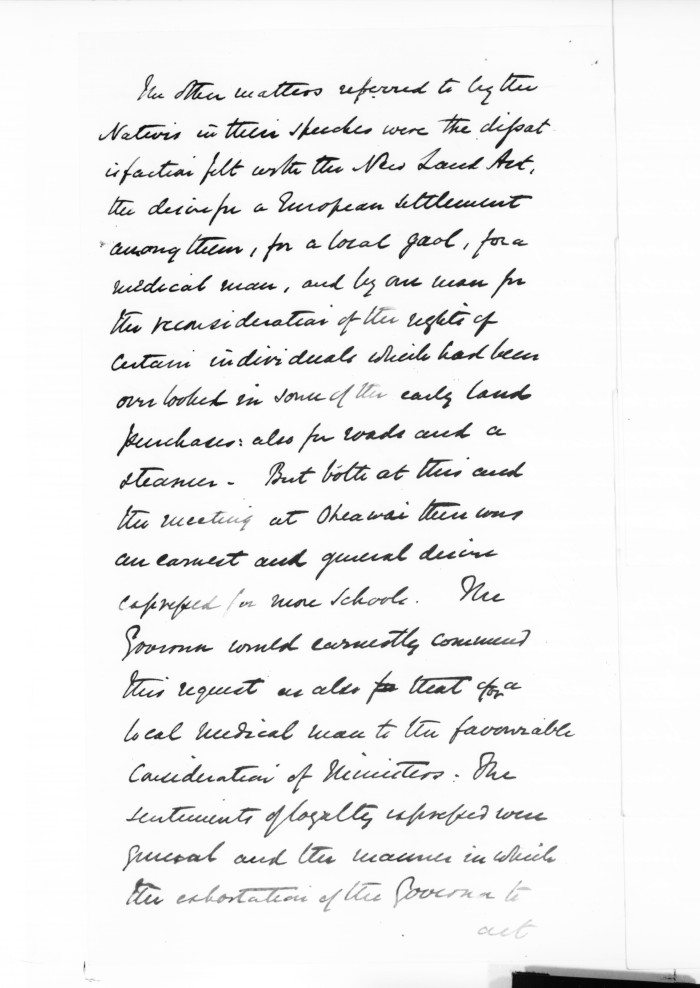 The other matters referred to by the
Natives in their speeches were the dissat
isfaction felt with the New Land Act,
the desire for a European settlement
among them, for a local gaol, for a
medical man, and by one man for
the reconsideration of the rights of
certain individuals which had been
overlooked in some of the early land
purchases: also for roads and a
steamer - But both at this and
the meeting at Oheawai there was
an earnest and general desire
expressed for more schools. The
Governor would earnestly commend
this request as also that of a
local medical man to the favourable
consideration of Ministers. The
sentiments of loyalty expressed were
general and the manner in which
the exhortation of the Governor to
act